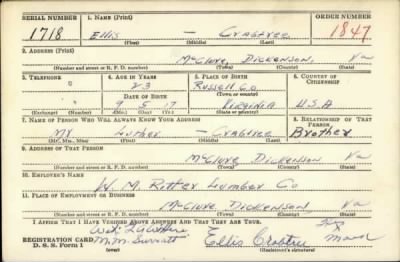 SERIAL NUMBER 1. NAME (Print) ORDER NUMBER
1718 ELLIS — CRABTREE 1847
(First) (Middle) (Last)
2. ADDRESS (Print)
McCLURE, DICKENSON, VA
(Number and street or R. F. D. number) (Town) (County) (State)
3. TELEPHONE 4. AGE IN YEARS 5. PLACE OF BIRTH 6. COUNTRY OF CITIZENSHIP
0 23 RUSSELL CO
DATE OF BIRTH (Town or county)
9 5 17 VIRGINIA U.S.A
(Exchange) (Number) (Mo.) (Day) (Yr.) (State or country)
7. NAME OF PERSON WHO WILL ALWAYS KNOW YOUR ADDRESS 8. RELATIONSHIP OF THAT PERSON
MR LUTHER — CRABTREE Brother
(Mr., Mrs., Miss) (First) (Middle) (Last)
9. ADDRESS OF THAT PERSON
McCLURE DICKENSON Va
(Number and street or R. F. D. number) (Town) (County) (State)
10. EMPLOYER'S NAME
W. M. Ritter Lumber Co
11. PLACE OF EMPLOYMENT OR BUSINESS
McCLURE DICKENSON Va
(Number and street or R. F. D. number) (Town) (County) (State)
I AFFIRM THAT I HAVE VERIFIED ABOVE ANSWERS AND THAT THEY ARE TRUE.
REGISTRATION CARD
D. S. S. Form 1 Ellis Crabtree
(over) (Registrant's signature)